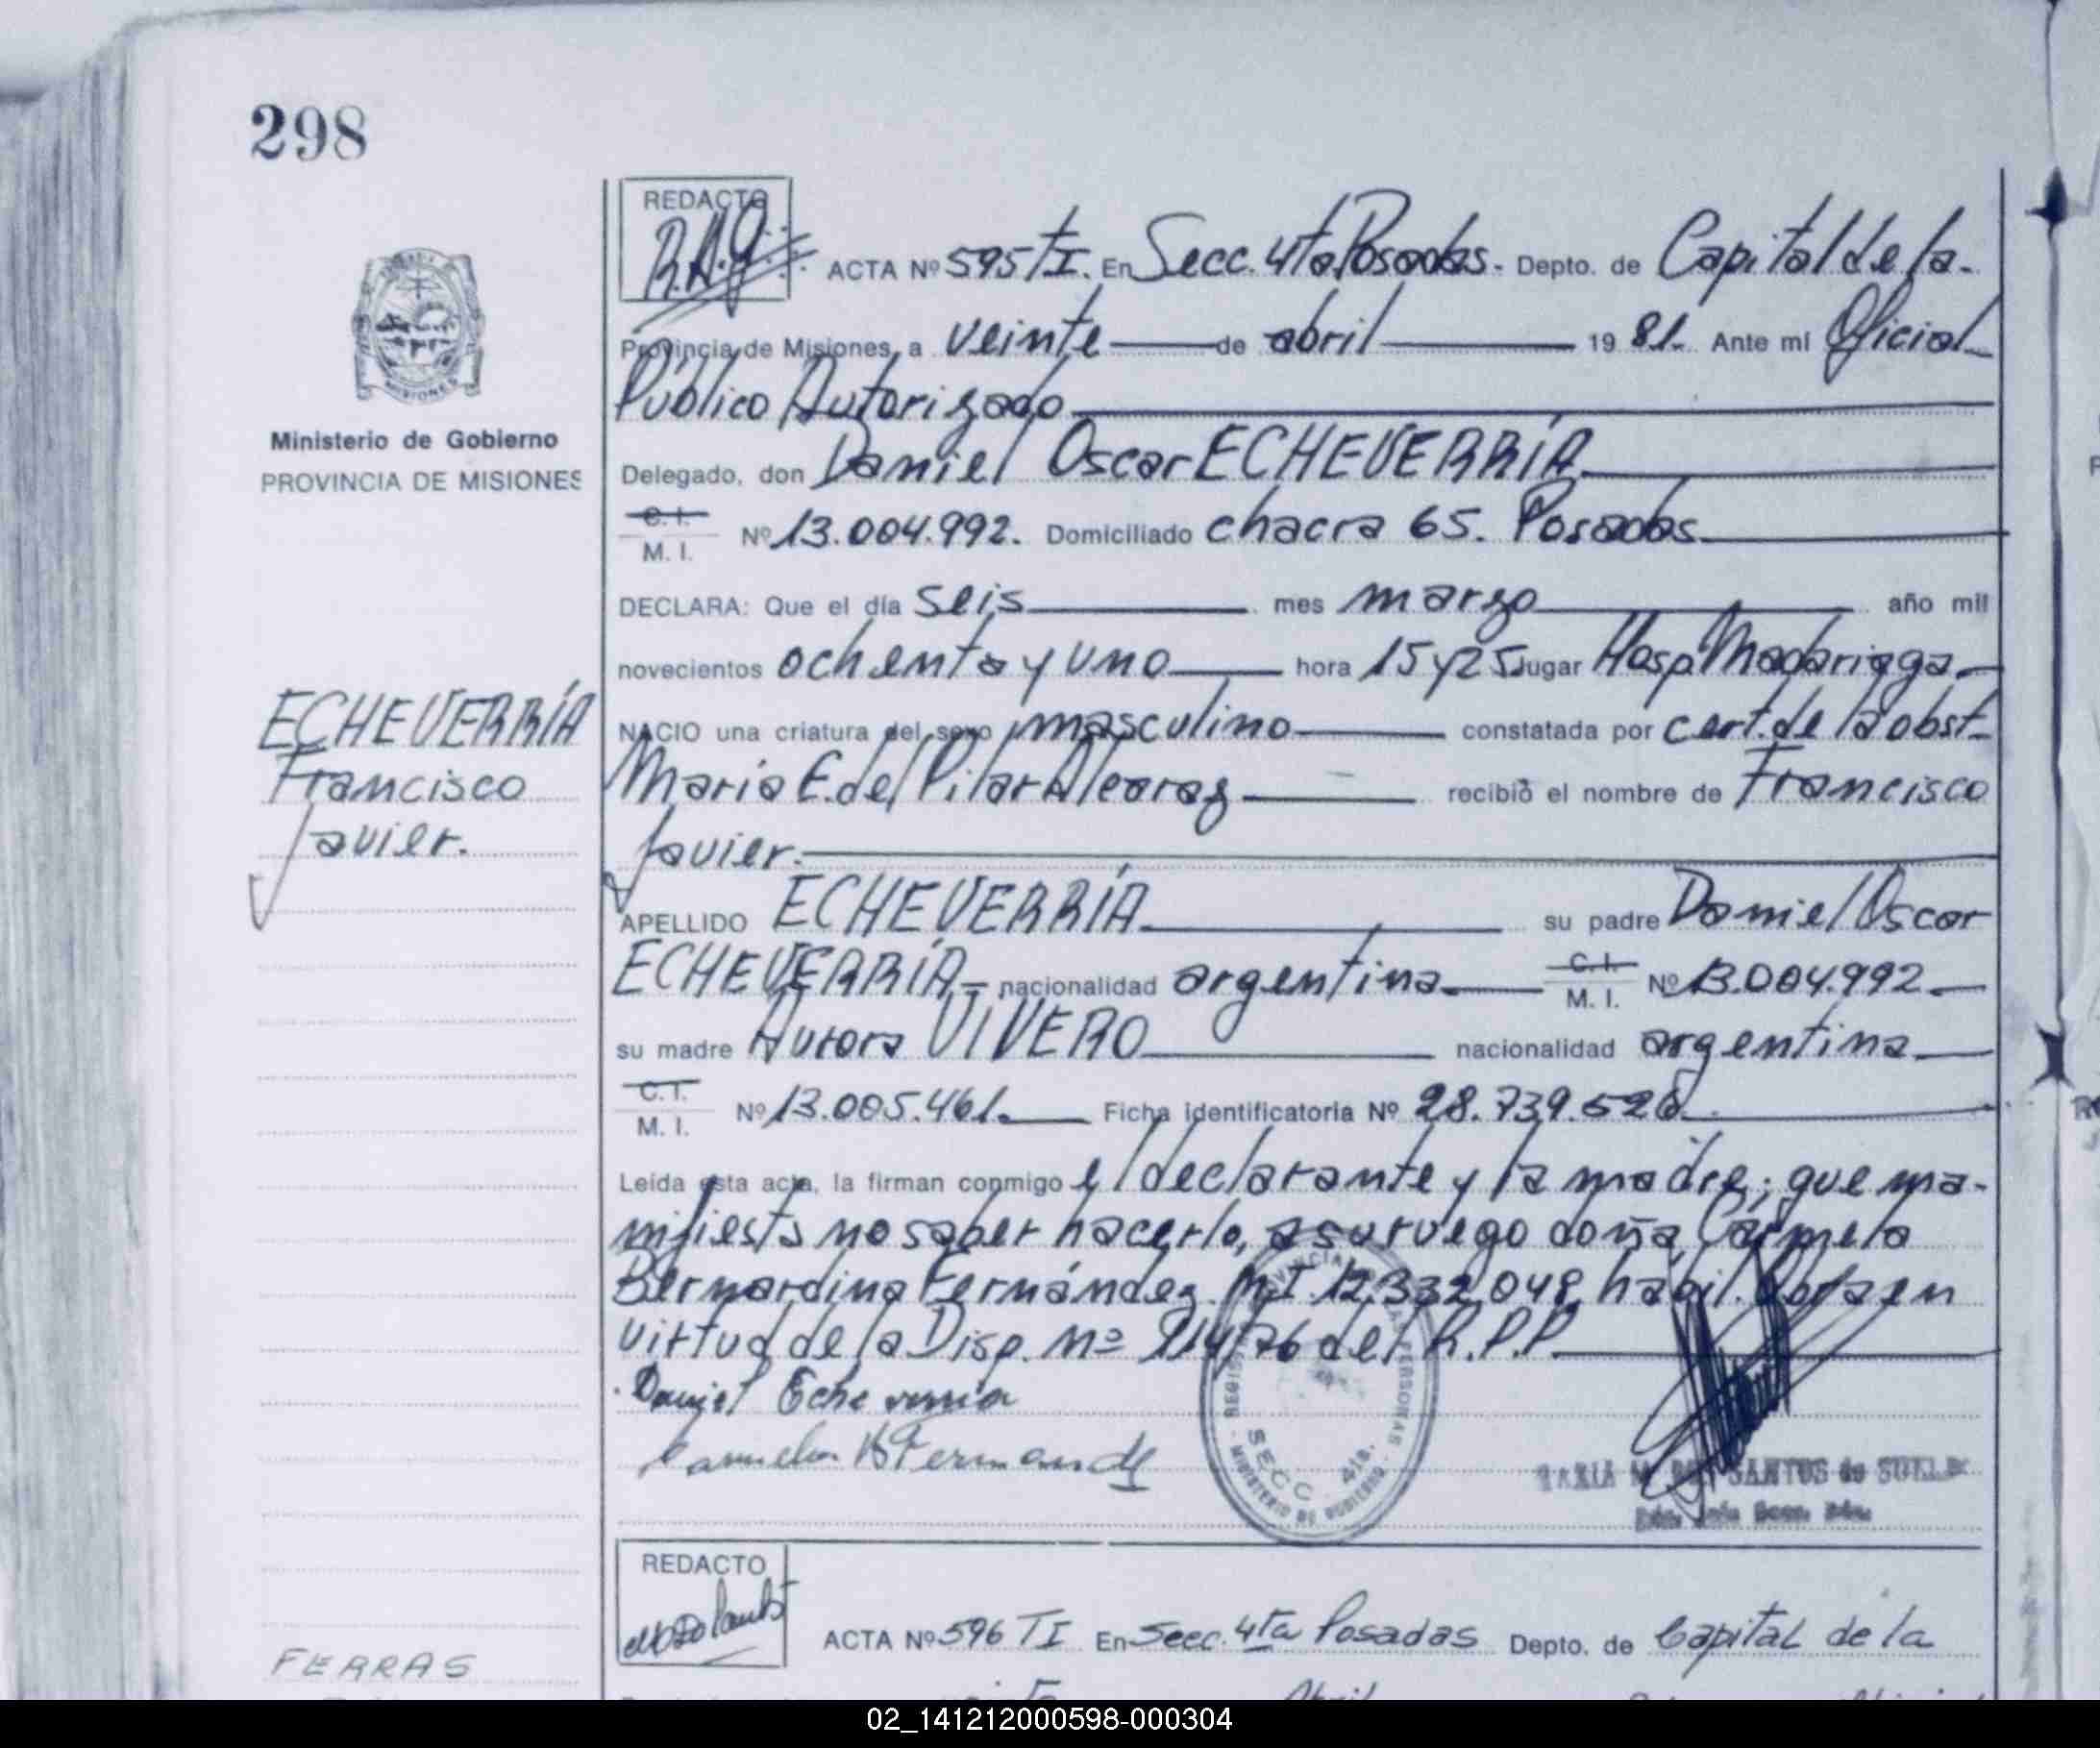 298
REDACTO
R.A.G.
ACTA Nº 595 TI. En Secc. 4ta Posadas. Depto. de Capital de la
Provincia de Misiones, a veinte de abril 1981. Ante mí Oficial
Público Autorizado
Ministerio de Gobierno
PROVINCIA DE MISIONES
Delegado, don Daniel Oscar ECHEVERRÍA
C. I.
M. I. Nº 13.004.992. Domiciliado chacra 65. Posadas.
DECLARA: Que el día seis mes marzo año mil
novecientos ochenta y uno hora 15 y 25 lugar Hosp. Madariaga
NACIO una criatura del sexo masculino constatada por cert. de la obst.
María E. del Pilar Alcaraz recibió el nombre de Francisco
Javier.
ECHEVERRÍA
Francisco
Javier.
APELLIDO ECHEVERRÍA su padre Daniel Oscar
ECHEVERRÍA nacionalidad argentina C. I. M. I. Nº 13.004.992
su madre Aurora VIVERO nacionalidad argentina
C. I.
M. I. Nº 13.005.461. Ficha identificatoria Nº 28.739.528
Leída esta acta, la firman conmigo el declarante y la madre; que ma-
nifiesta no saber hacerlo, a su ruego doña Carmela
Bernardina Fernández M.I. 12.332.048, hábil. en
virtud de la Disp. Nº 214/76 del R.P.P.
Daniel Echeverria
Carmelа B Fernande
REGISTRO PROVINCIAL PERSONAS
SECC 4ta.
MINISTERIO DE GOBIERNO
MARIA SANTOS de
REDACTO
ACTA Nº 596 TI En Secc. 4ta Posadas Depto. de Capital de la
FERRAS
02_141212000598-000304